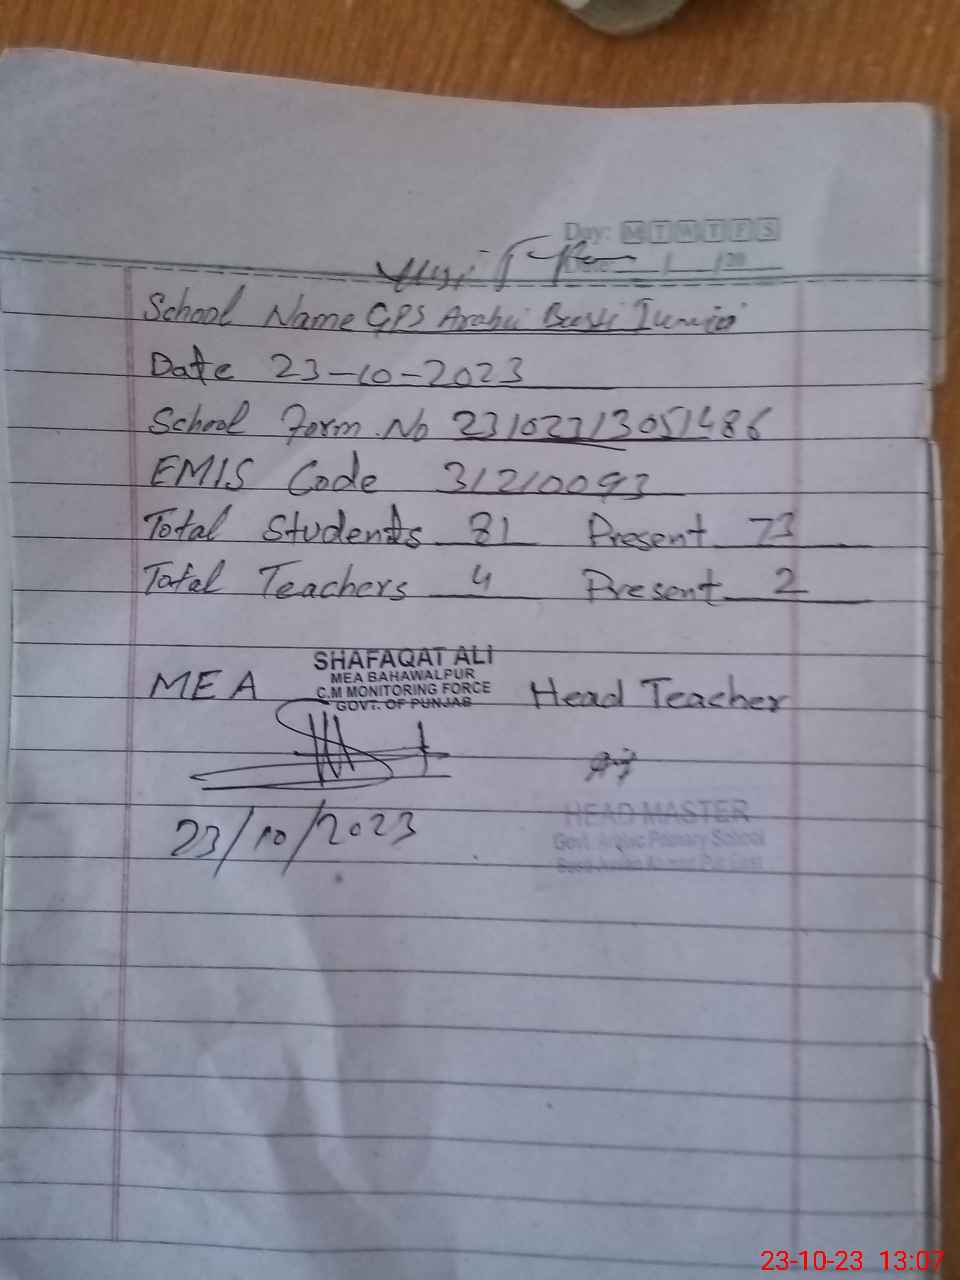 Day: M T W T F S
Date: / /20
School Name GPS Arabi Basti
Date 23-10-2023
School Form No 23102313051486
EMIS Code 31210093
Total Students 81 Present 73
Total Teachers 4 Present 2
MEA SHAFAQAT ALI Head Teacher
MEA BAHAWALPUR
C.M MONITORING FORCE
GOVT. OF PUNJAB
23/10/2023
HEAD MASTER
Govt. Primary School
23-10-23 13:07